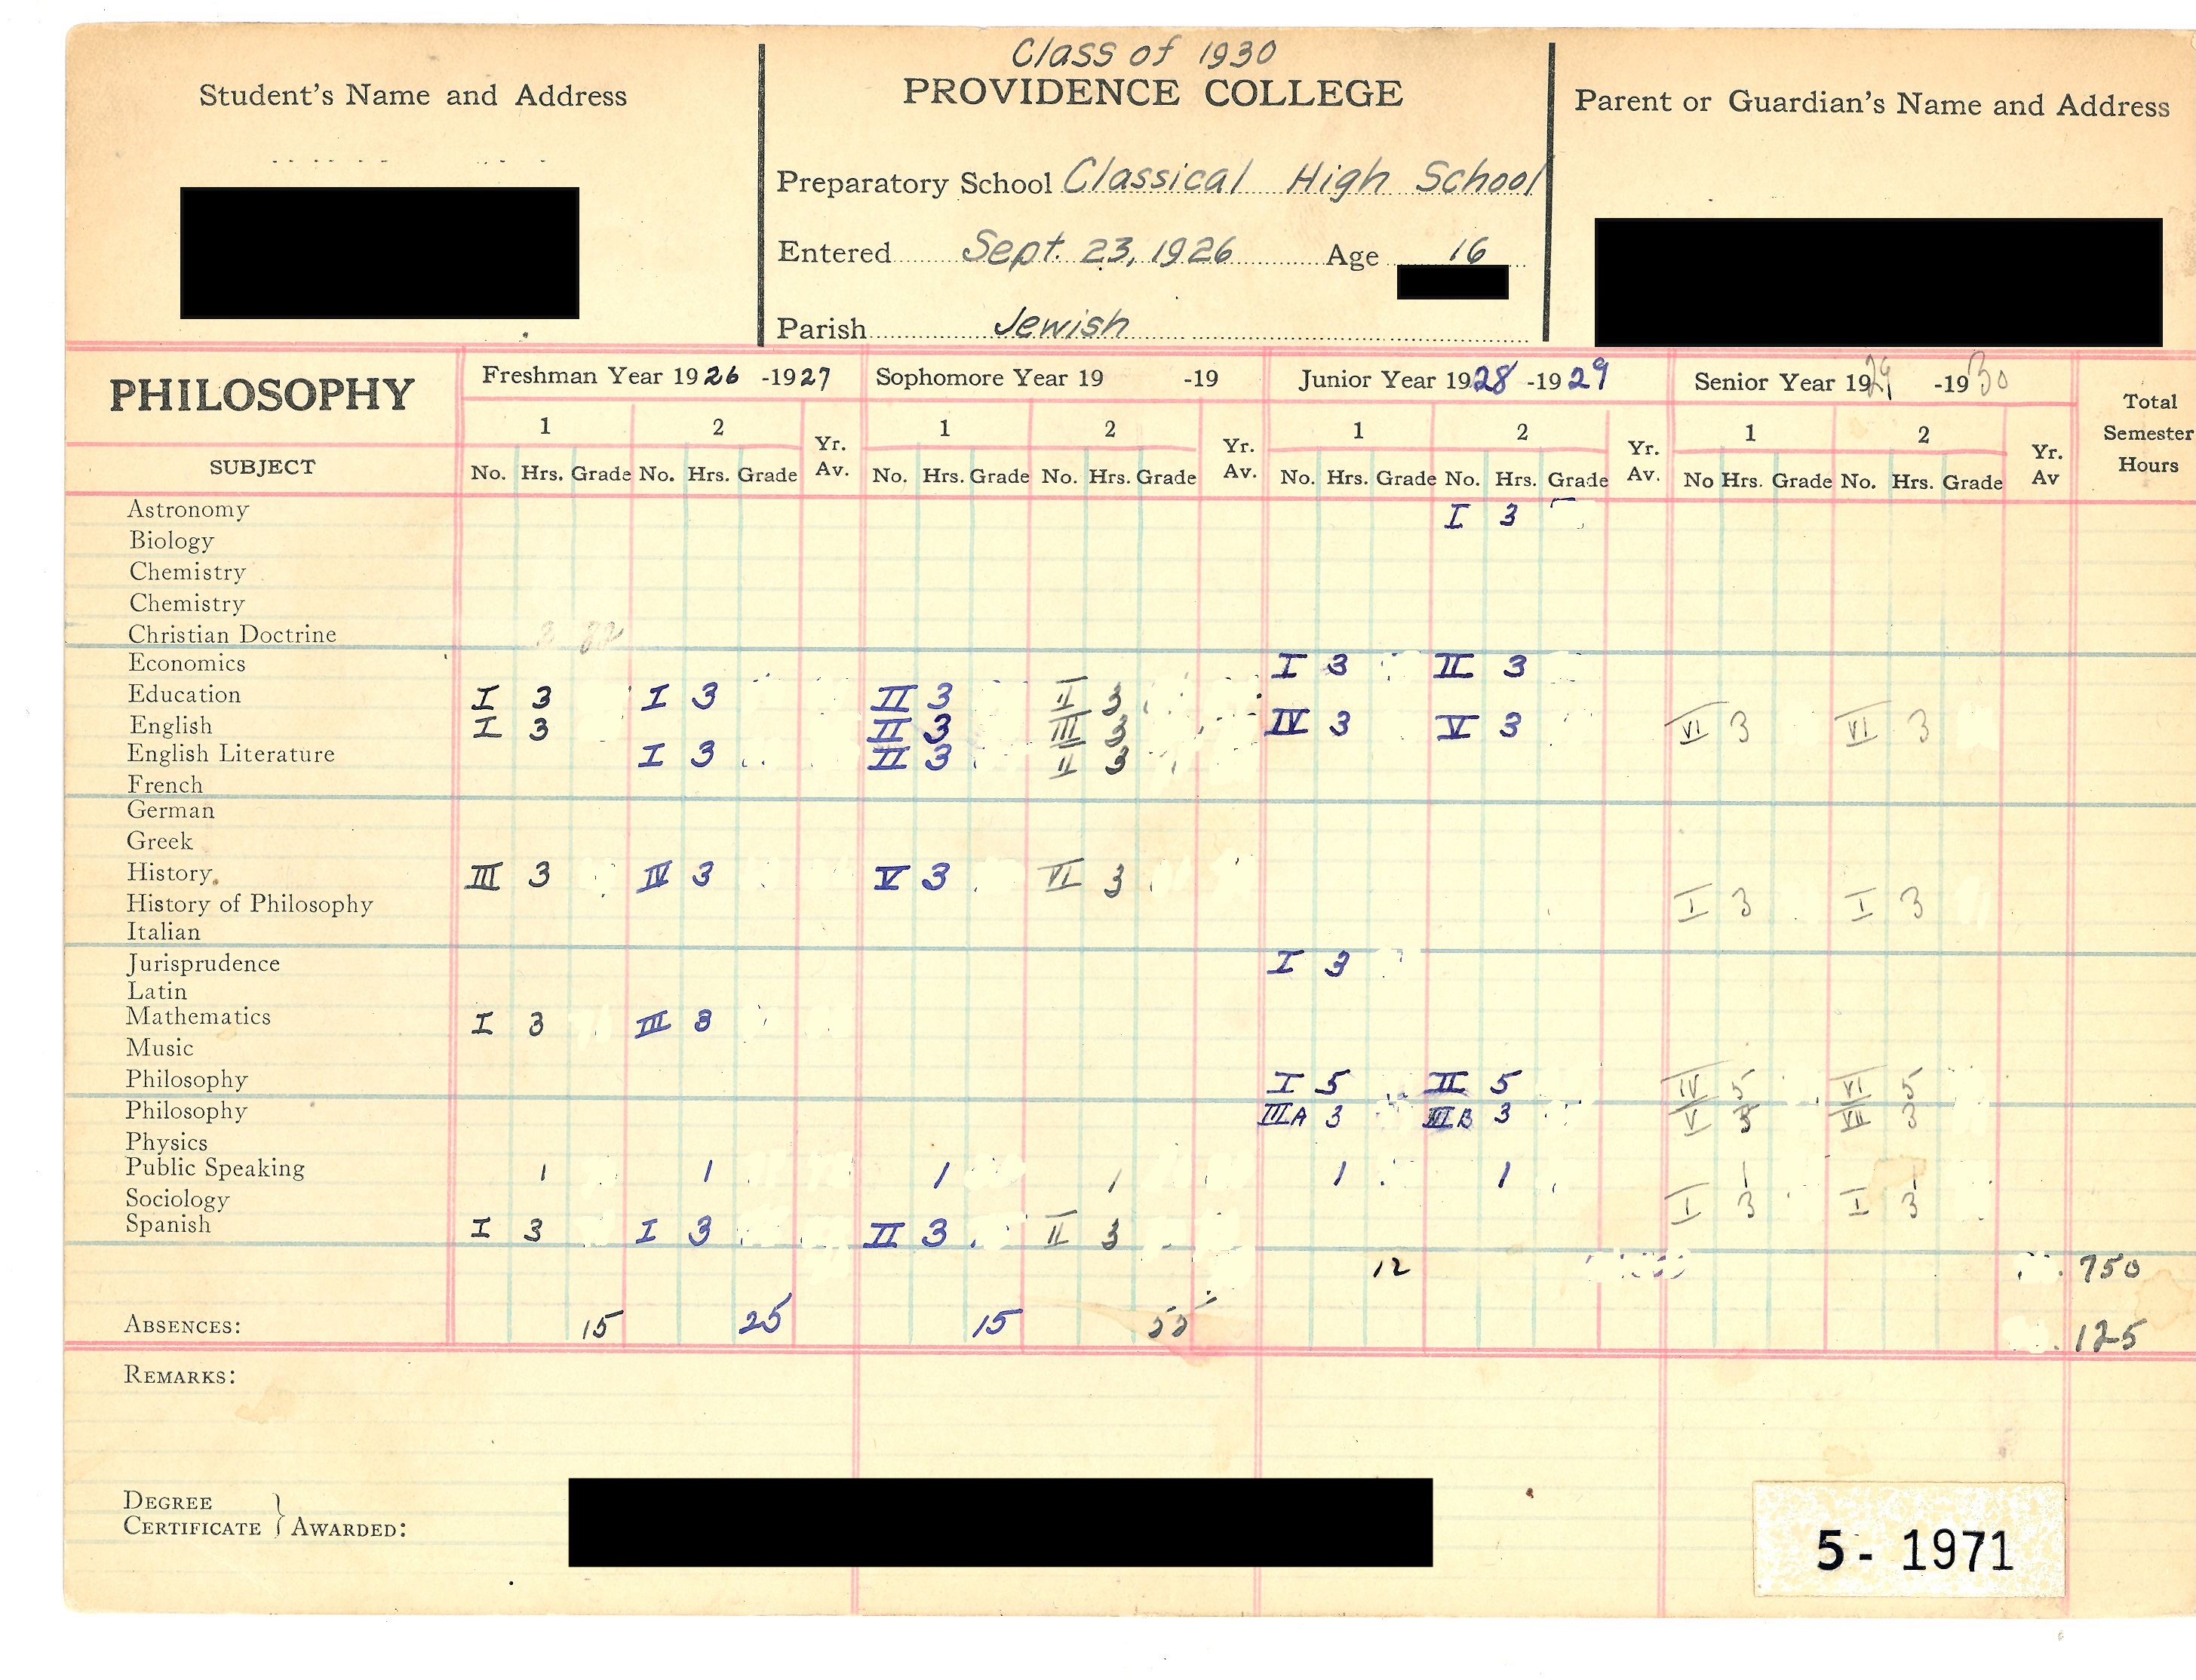 Class of 1930
Student's Name and Address
PROVIDENCE COLLEGE
Parent or Guardian's Name and Address
Preparatory School Classical High School
Entered Sept. 23, 1926 Age 16
Parish Jewish
PHILOSOPHY
Freshman Year 1926 -1927 Sophomore Year 19 -19 Junior Year 1928 -1929 Senior Year 1929 -1930
Total Semester Hours
1 2 Yr. Av. 1 2 Yr. Av. 1 2 Yr. Av. 1 2 Yr. Av
SUBJECT No. Hrs. Grade No. Hrs. Grade No. Hrs. Grade No. Hrs. Grade No. Hrs. Grade No. Hrs. Grade No Hrs. Grade No. Hrs. Grade
Astronomy I 3
Biology
Chemistry
Chemistry
Christian Doctrine
Economics I 3 II 3
Education I 3 I 3 II 3 II 3
English I 3 II 3 III 3 IV 3 V 3 VI 3 VI 3
English Literature I 3 II 3 II 3
French
German
Greek
History III 3 IV 3 V 3 VI 3
History of Philosophy I 3 I 3
Italian
Jurisprudence I 3
Latin
Mathematics I 3 III 3
Music
Philosophy I 5 II 5 IV 5 VI 5
Philosophy IIIA 3 IIIB 3 V 3 VII 3
Physics
Public Speaking 1 1 1 1 1 1 1 1
Sociology I 3 I 3
Spanish I 3 I 3 II 3 II 3
12 750
ABSENCES: 15 25 15 125
REMARKS:
DEGREE
CERTIFICATE } AWARDED:
5 - 1971